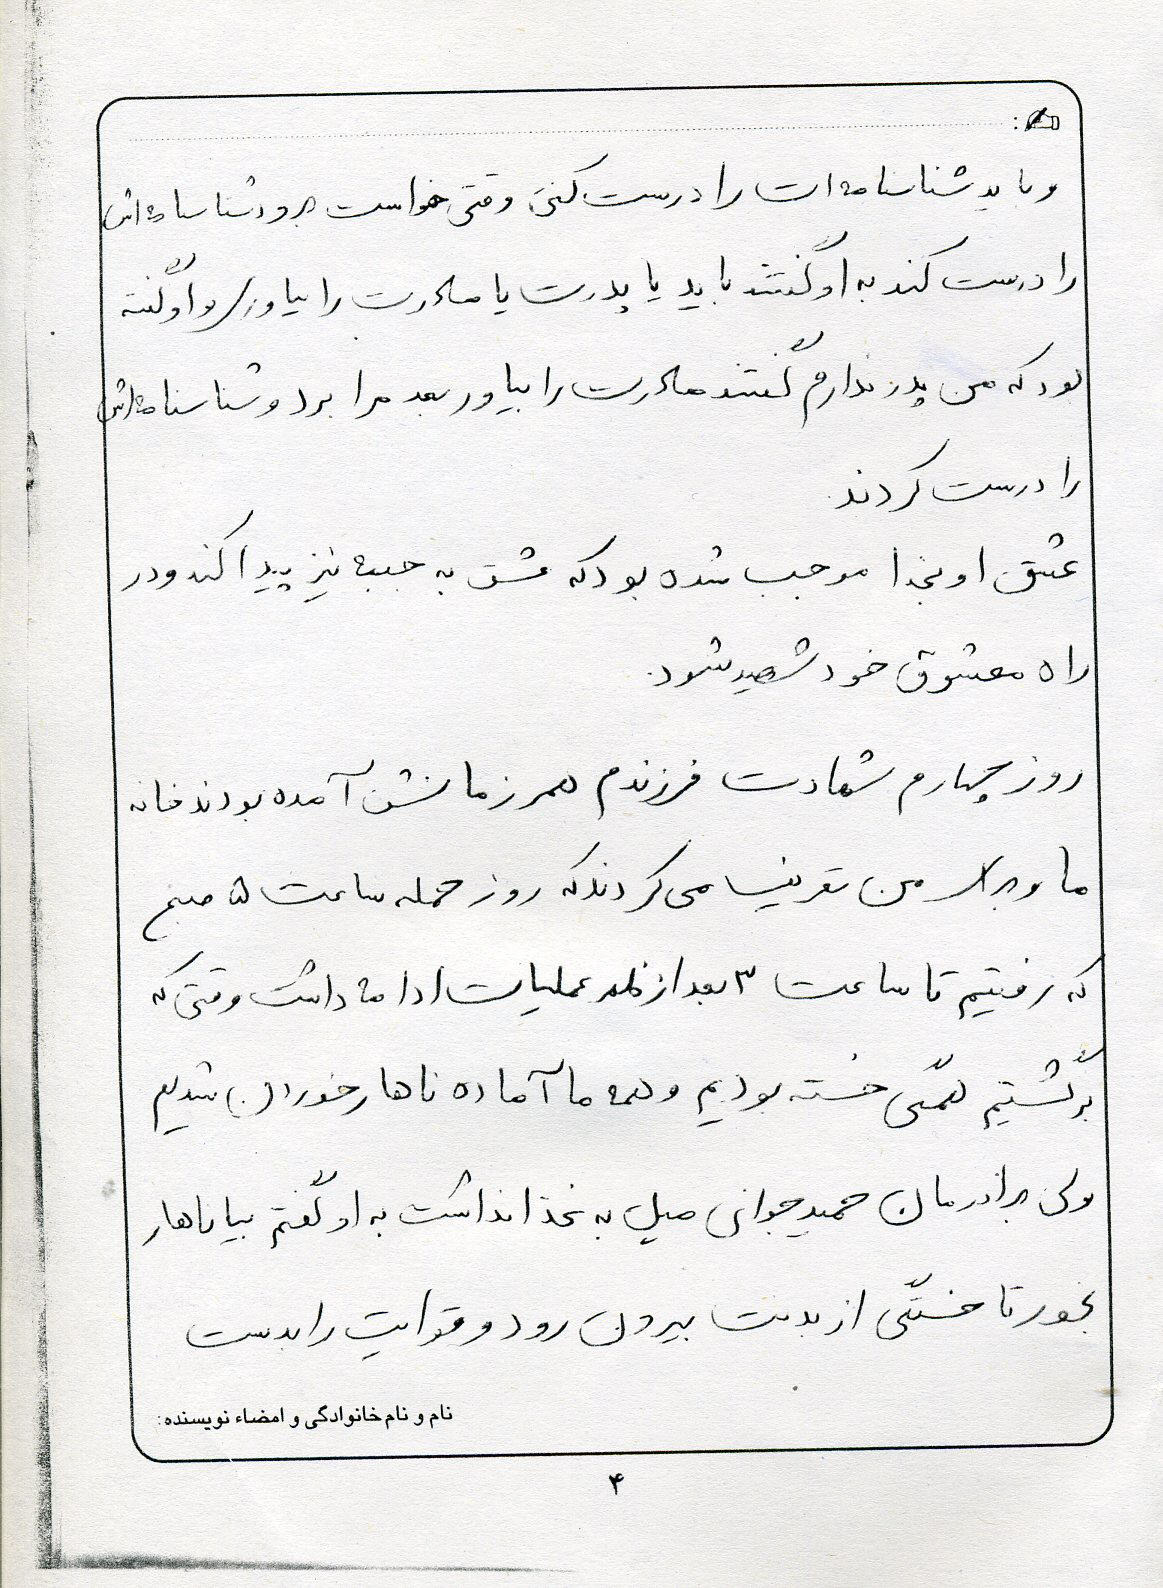 :
و باید شناسنامه ات را درست کنی وقتی خواست برود شناسنامه اش
را درست کند به او گفتند باید یا پدرت یا مادرت را بیاوری و او گفته
بود که من پدر ندارم گفتند مادرت را بیاور بعد مرا برد و شناسنامه اش
را درست کردند.
عشق او بخدا موجب شده بود که عشق به جبهه نیز پیدا کند و در
راه معشوق خود شهید شود.
روز چهارم شهادت فرزندم همرزمانش آمده بودند خانه
ما و برای من تعریف می کردند که روز حمله ساعت ۵ صبح
که رفتیم تا ساعت ۳ بعد از ظهر عملیات ادامه داشت وقتی که
برگشتیم همگی خسته بودیم و همه ما آماده ناهار خوردن شدیم
ولی برادرمان حمید جوانی میل به غذا نداشت به او گفتم بیا ناهار
بخور تا خستگی از بدنت بیرون رود و قوایت را بدست
نام و نام خانوادگی و امضاء نویسنده:
۴